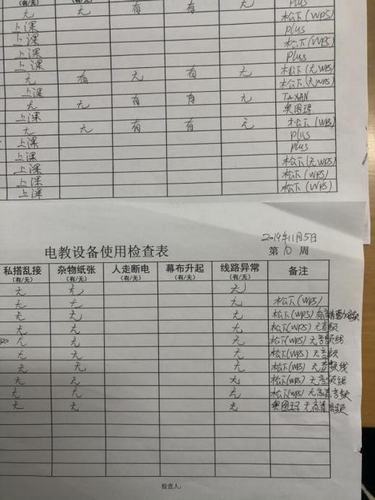 (有/无) (有/无) (有/无) (有/无) (有/无) Plus
无 无 有 有 无 松下(WPS)
上课 Plus
上课 松下(WPS)
上课 Plus
上课 松下(WPS)
无 有 无 有 无 松下(无WPS)
上课 松下(无WPS)
无 无 有 有 无 TAXAN
上课 奥图码
无 无 有 有 无 松下(WPS)
上课 Plus
上课 Plus
上课 松下(无WPS)
上课 松下(WPS)
上课 松下(WPS)
电教设备使用检查表
2019年11月5日
第10周
私搭乱接 杂物纸张 人走断电 幕布升起 线路异常 备注
(有/无) (有/无) (有/无) (有/无) (有/无)
无 无 无
无 无 无 松下(WPS)
无 无 无 松下(WPS)
无 无 无 松下(WPS) 无音频
无 无 无 松下(WPS) 无音频线
无 无 无 松下(WPS) 无音频
无 无 无 松下(WPS) 无音频线
无 无 无 松下(WPS) 无音频
无 无 无 松下(WPS) 无高清音频
无 无 无 奥图码 无高清音频
检查人: